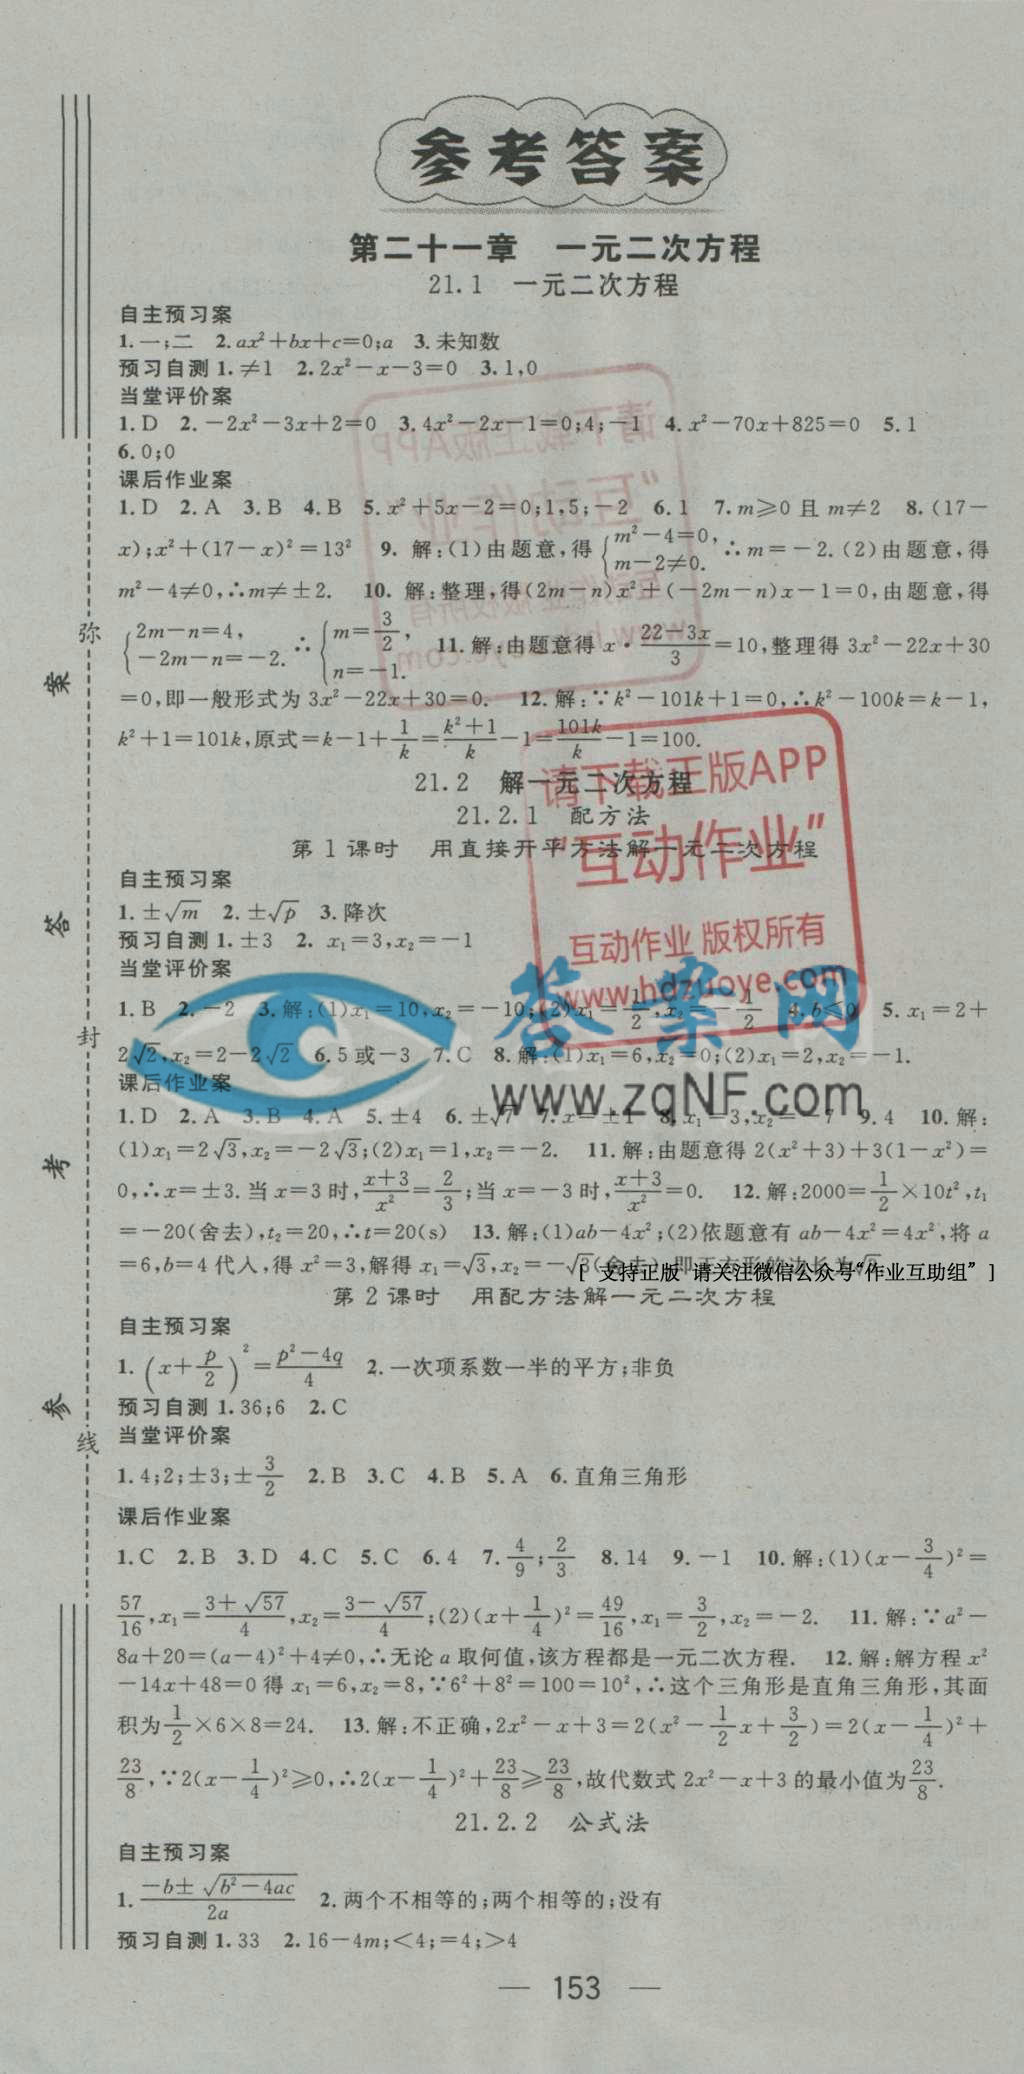 参考答案
第二十一章 一元二次方程
21.1 一元二次方程
自主预习案
1.一;二 2.ax²+bx+c=0;a 3.未知数
预习自测 1.≠1 2.2x²-x-3=0 3.1,0
当堂评价案
1.D 2.-2x²-3x+2=0 3.4x²-2x-1=0;4;-1 4.x²-70x+825=0 5.1
6.0;0
课后作业案
1.D 2.A 3.B 4.B 5.x²+5x-2=0;1,5;-2 6.1 7.m≥0 且 m≠2 8.(17-
x);x²+(17-x)²=13² 9. 解:(1)由题意,得{m²-4=0, m-2≠0. ∴m=-2.(2)由题意,得
m²-4≠0,∴m≠±2. 10. 解:整理,得(2m-n)x²+(-2m-n)x-1=0,由题意,得
{2m-n=4, -2m-n=-2. ∴{m=3/2, n=-1. 11.解:由题意得 x·(22-3x)/3=10,整理得 3x²-22x+30
=0,即一般形式为 3x²-22x+30=0. 12.解:∵k²-101k+1=0,∴k²-100k=k-1,
k²+1=101k,原式=k-1+1/k=(k²+1)/k-1=101k/k-1=100.
21.2 解一元二次方程
21.2.1 配方法
第1课时 用直接开平方法解一元二次方程
自主预习案
1.±√m 2.±√p 3.降次
预习自测 1.±3 2. x₁=3,x₂=-1
当堂评价案
1.B 2.-2 3.解:(1)x₁=10,x₂=-10;(2)x₁=1/2,x₂=-1/2 4.b≤0 5.x₁=2+
2√2,x₂=2-2√2 6.5或-3 7.C 8.解:(1)x₁=6,x₂=0;(2)x₁=2,x₂=-1.
课后作业案
1.D 2.A 3.B 4.A 5.±4 6.±√7 7.x=±1 8.x₁=3,x₂=-7 9.4 10.解:
(1)x₁=2√3,x₂=-2√3;(2)x₁=1,x₂=-2. 11.解:由题意得 2(x²+3)+3(1-x²)=
0,∴x=±3.当 x=3 时,(x+3)/x²=2/3;当 x=-3 时,(x+3)/x²=0. 12.解:2000=1/2×10t²,t₁
=-20(舍去),t₂=20,∴t=20(s) 13.解:(1)ab-4x²;(2)依题意有 ab-4x²=4x²,将 a
=6,b=4代入,得 x²=3,解得 x₁=√3,x₂=-√3(舍去),即正方形的边长为√3
[ 支持正版 请关注微信公众号“作业互助组” ]
第2课时 用配方法解一元二次方程
自主预习案
1.(x+p/2)²=(p²-4q)/4 2.一次项系数一半的平方;非负
预习自测 1.36;6 2.C
当堂评价案
1.4;2;±3;±3/2 2.B 3.C 4.B 5.A 6.直角三角形
课后作业案
1.C 2.B 3.D 4.C 5.C 6.4 7.4/9;2/3 8.14 9.-1 10.解:(1)(x-3/4)²=
57/16,x₁=(3+√57)/4,x₂=(3-√57)/4;(2)(x+1/4)²=49/16,x₁=3/2,x₂=-2. 11.解:∵a²-
8a+20=(a-4)²+4≠0,∴无论 a 取何值,该方程都是一元二次方程. 12.解:解方程 x²
-14x+48=0 得 x₁=6,x₂=8,∵6²+8²=100=10²,∴这个三角形是直角三角形,其面
积为1/2×6×8=24. 13.解:不正确,2x²-x+3=2(x²-1/2x+3/2)=2(x-1/4)²+
23/8,∵2(x-1/4)²≥0,∴2(x-1/4)²+23/8≥23/8,故代数式 2x²-x+3 的最小值为23/8.
21.2.2 公式法
自主预习案
1.(-b±√(b²-4ac))/2a 2.两个不相等的;两个相等的;没有
预习自测 1.33 2.16-4m;<4;=4;>4
— 153 —
弥
封
线
案
答
考
参
请下载正版APP
“互动作业”
互动作业 版权所有
www.hdzuoye.com
请下载正版APP
“互动作业”
互动作业 版权所有
www.hdzuoye.com
答案网
www.zqNF.com